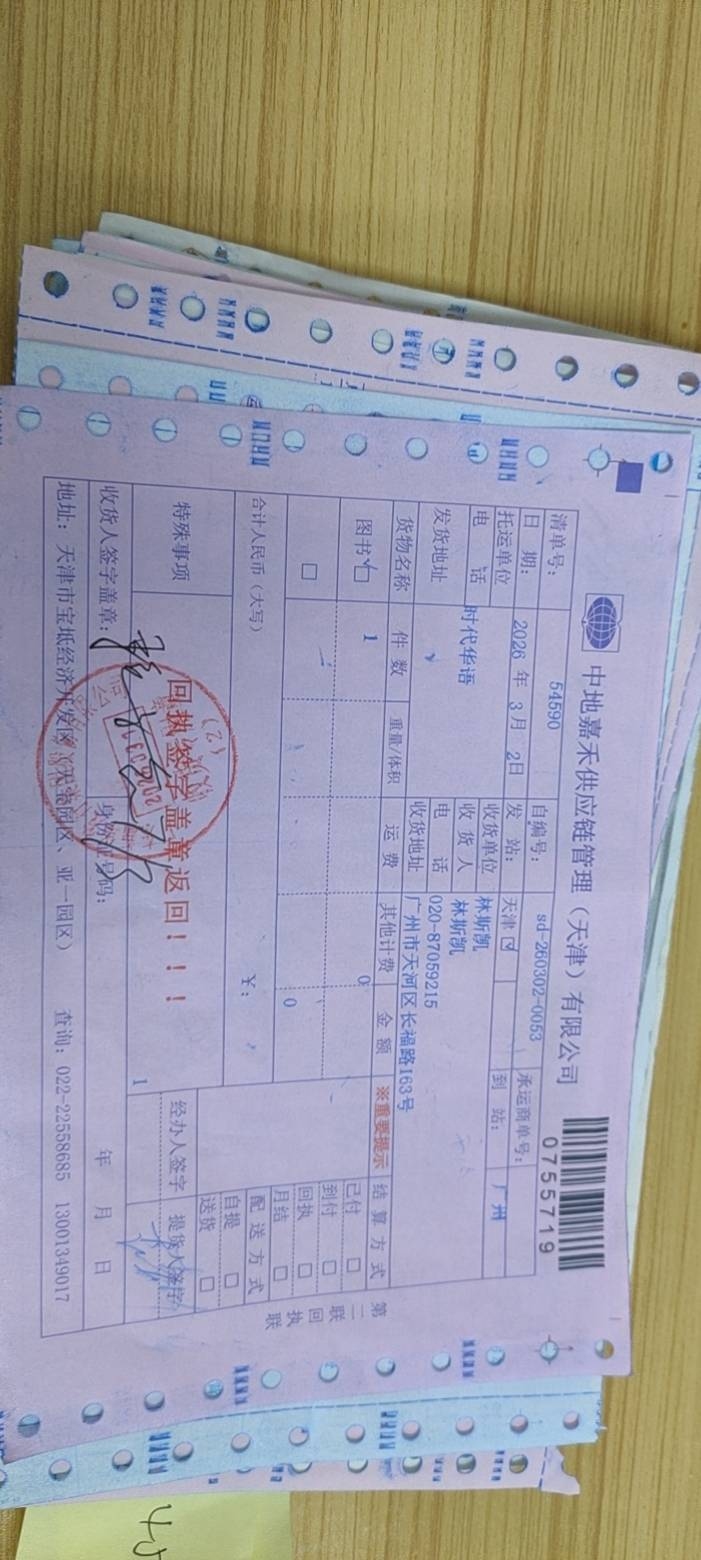 中地嘉禾供应链管理（天津）有限公司
0755719
清单号： 54590 自编号： sd-260302-0053 承运商单号：
日 期： 2026 年 3 月 2日 发 站： 天津 到 站： 广州
托运单位 时代华语 收货单位 林斯凯
电 话 收 货 人 林斯凯
发货地址 电 话 020-87059215
收货地址 广州市天河区长福路163号
货物名称 件 数 重量/体积 运 费 其他计费 金 额 ※重要提示 结 算 方 式
图书 1 0 已付
到付
0 回执
月结
合计人民币（大写） ¥： 配 送 方 式
自提
送货
特殊事项 回执签字盖章返回！！！ 1 经办人签字 提货人签字
收货人签字盖章： 身份证号码： 年 月 日
地址：天津市宝坻经济开发区（天宝园区、亚一园区） 查询：022-22558685 13001349017
第二联 回执联
45